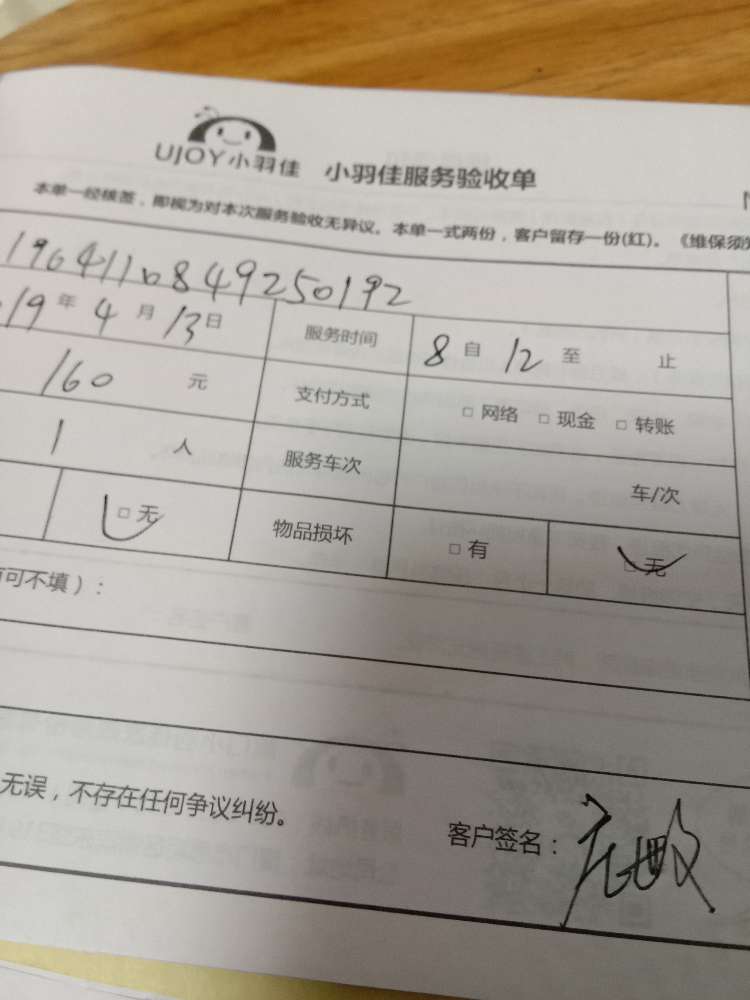 UJOY小羽佳 小羽佳服务验收单
本单一经核签，即视为对本次服务验收无异议。本单一式两份，客户留存一份(红)。《维保须知
1964110849250192
19年4月13日 服务时间 8自12至 止
160 元 支付方式 □网络 □现金 □转账
1 人 服务车次 车/次
□无 物品损坏 □有 □无
可不填）：
无误，不存在任何争议纠纷。 客户签名：